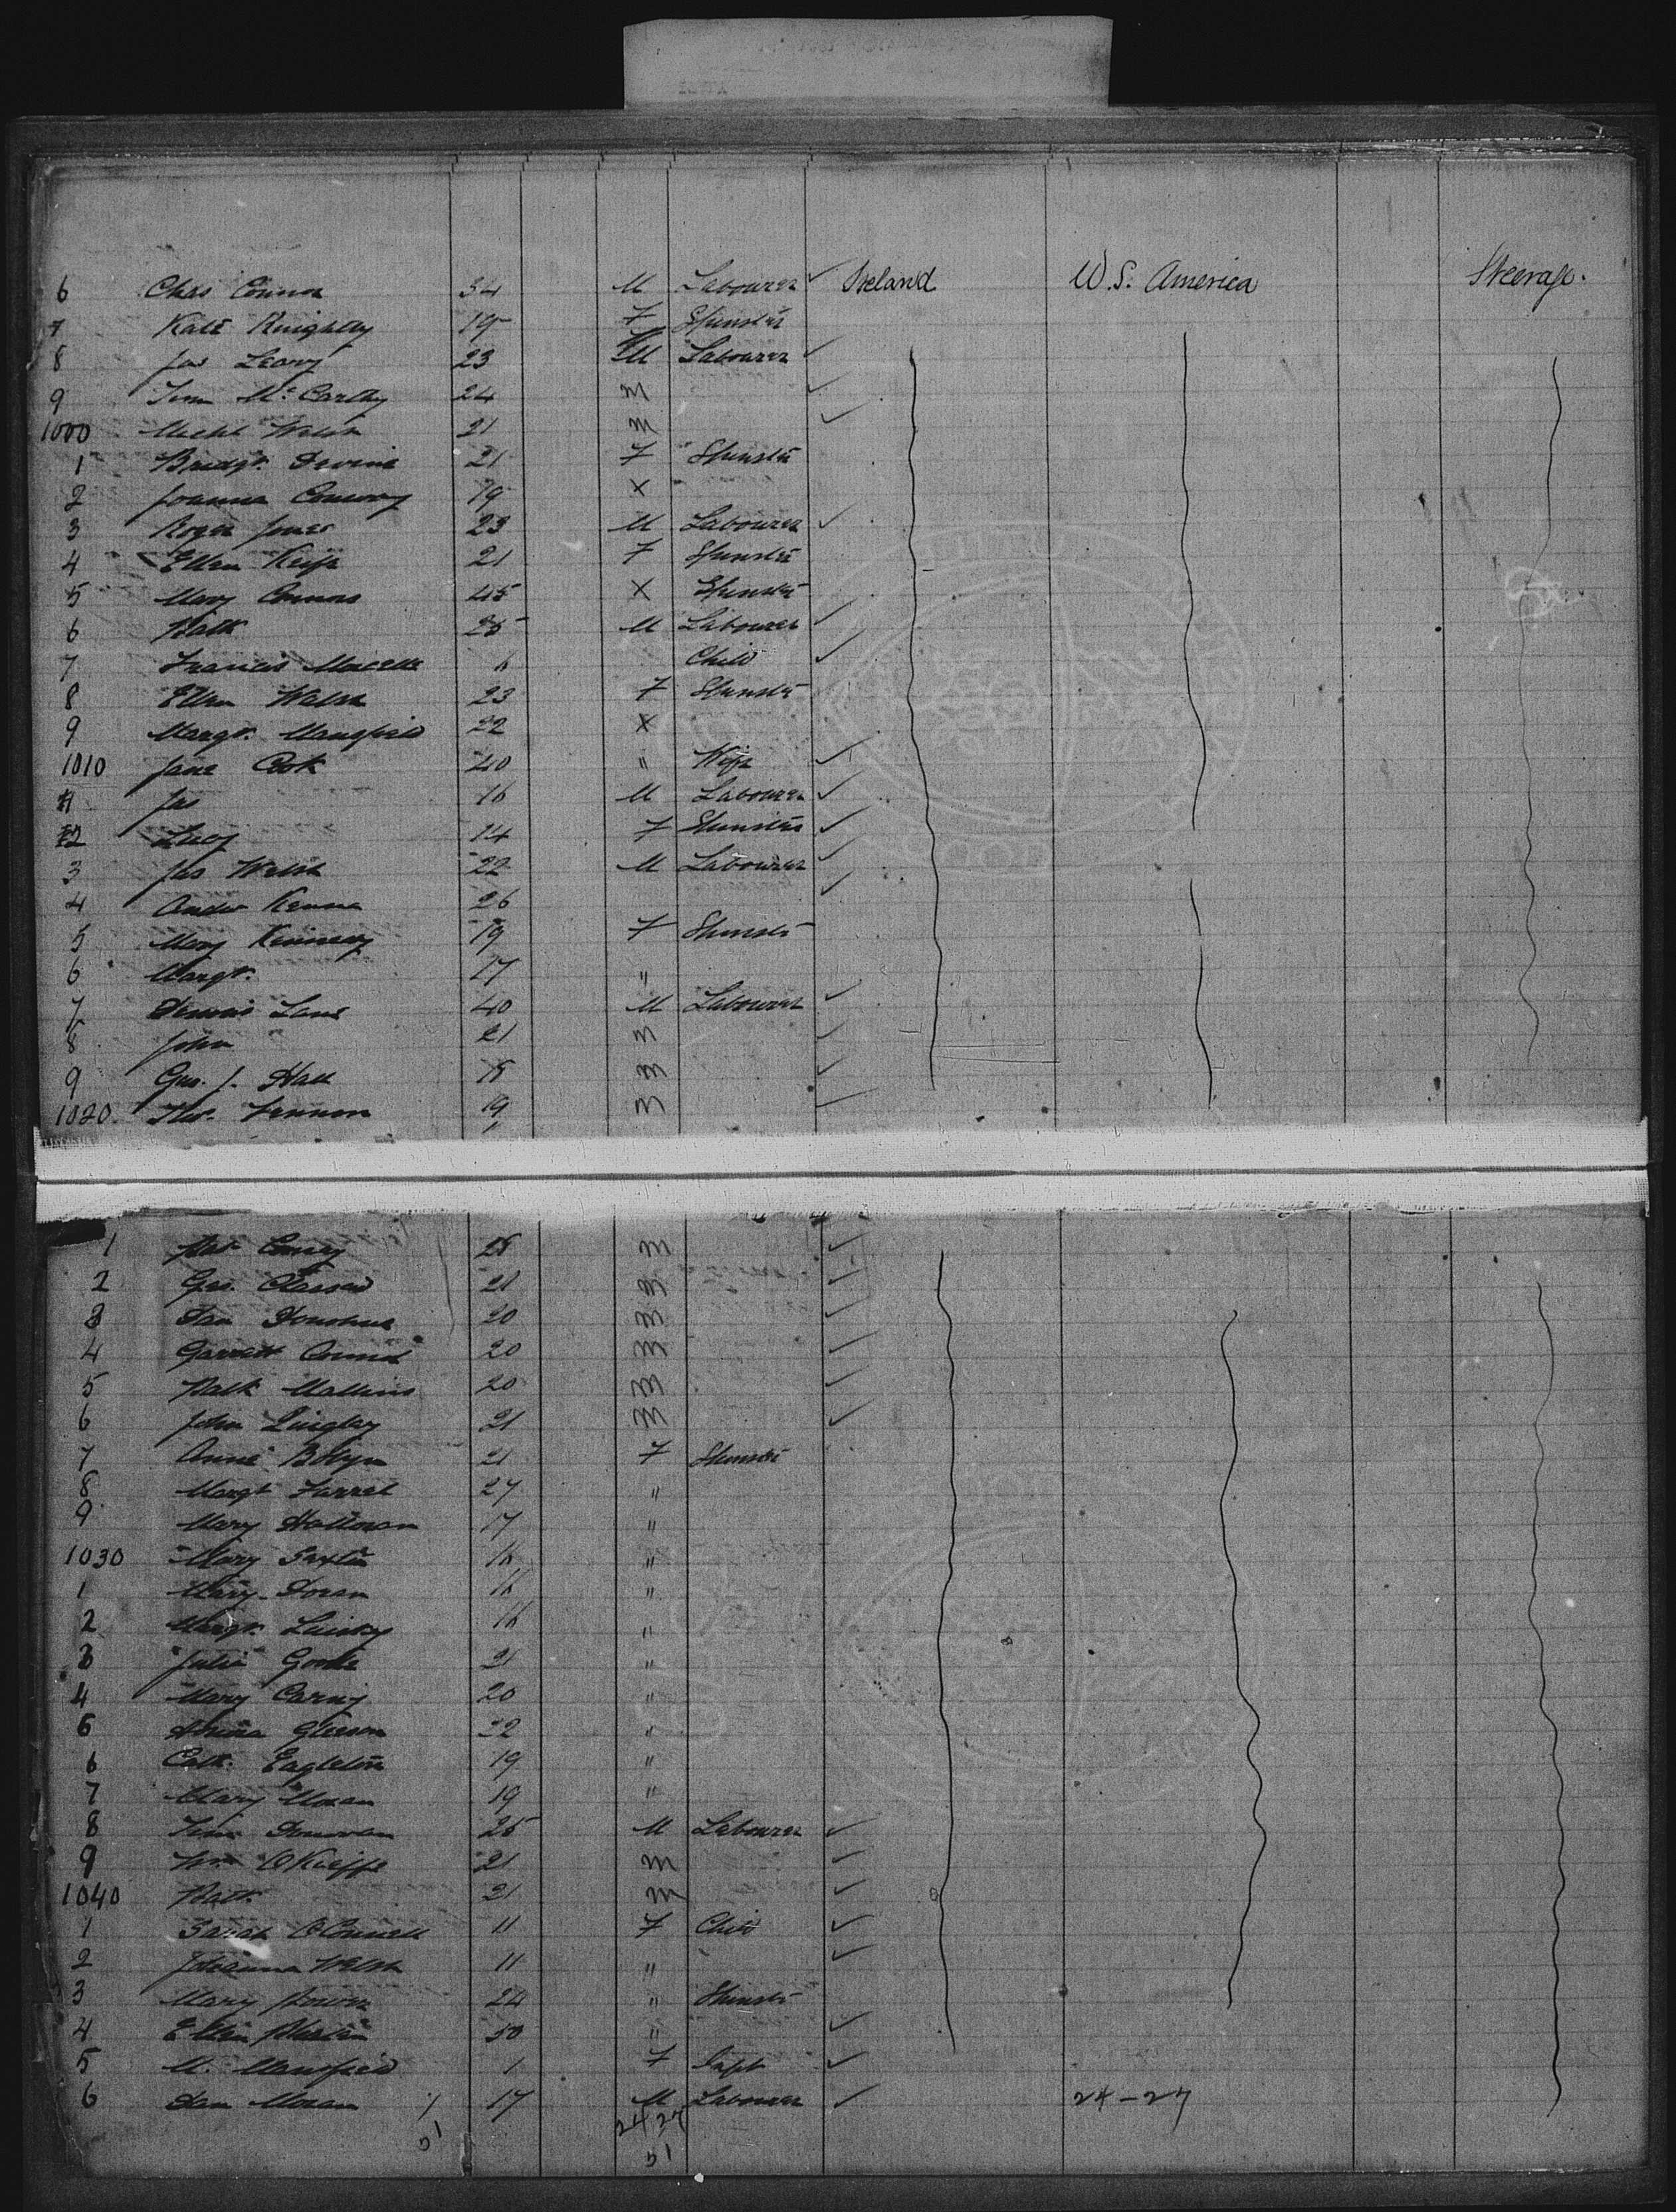 6 Chas Connor 34 M Labourer ✓ Ireland U.S. America Steerage.
7 Kate Knightly 19 F Spinster
8 Jas Leary 23 M Labourer ✓
9 Tim McCarthy 24 M ✓
1000 Michl Welsh 21 M ✓
1 Bridgt. Devine 21 F Spinster
2 Joanna Conway 19 ×
3 Roger Jones 23 M Labourer ✓
4 Ellen Keefe 21 F Spinster
5 Mary Connors 45 × Spinster
6 Patk 25 M Labourer ✓
7 Francis Child ✓
8 Ellen Walsh 23 F Spinster
9 Margt. Mansfield 22 ×
1010 Jane Cook 40 " Wife ✓
11 Jas 16 M Labourer ✓
12 Lucy 14 F Spinster ✓
3 Jas Welsh 22 M Labourer ✓
4 Andw Kenna 26 ✓
5 Mary Kennedy 19 F Spinster
6 Margt. 17 "
7 Dennis Lane 40 M Labourer ✓
8 John 21 M ✓
9 Geo. J. Hall 18 M ✓
1020. Thos. Lennon 19 M ✓
1 Pat 25 M ✓
2 Geo. 21 M ✓
3 Dan Donohue 20 M ✓
4 Garrett 20 M ✓
5 Patk Mallins 20 M ✓
6 John Lingley 21 M ✓
7 Annie 21 F Spinster
8 Margt Farrel 27 "
9 Mary Halloran 17 "
1030 Mary Sexton 16 "
1 Mary Doran 16 "
2 Margt. 16 "
3 Julia Goode 21 "
4 Mary Carny 20 "
5 Gleeson 22 "
6 Cath. Eagleton 19 "
7 Mary Moran 19 "
8 Tim Donovan 25 M Labourer ✓
9 Wm O'Kieffe 21 M ✓
1040 Patk. 21 M ✓
1 Sarah O'Connell 11 F Child ✓
2 Johanna Welsh 11 " ✓
3 Mary Power 24 " Spinster
4 Ellen Phelan 50 " ✓
5 M. Mansfield 1 F Inft ✓
6 Dan Moran 17 M Labourer ✓ 24-27
51 24/27
51